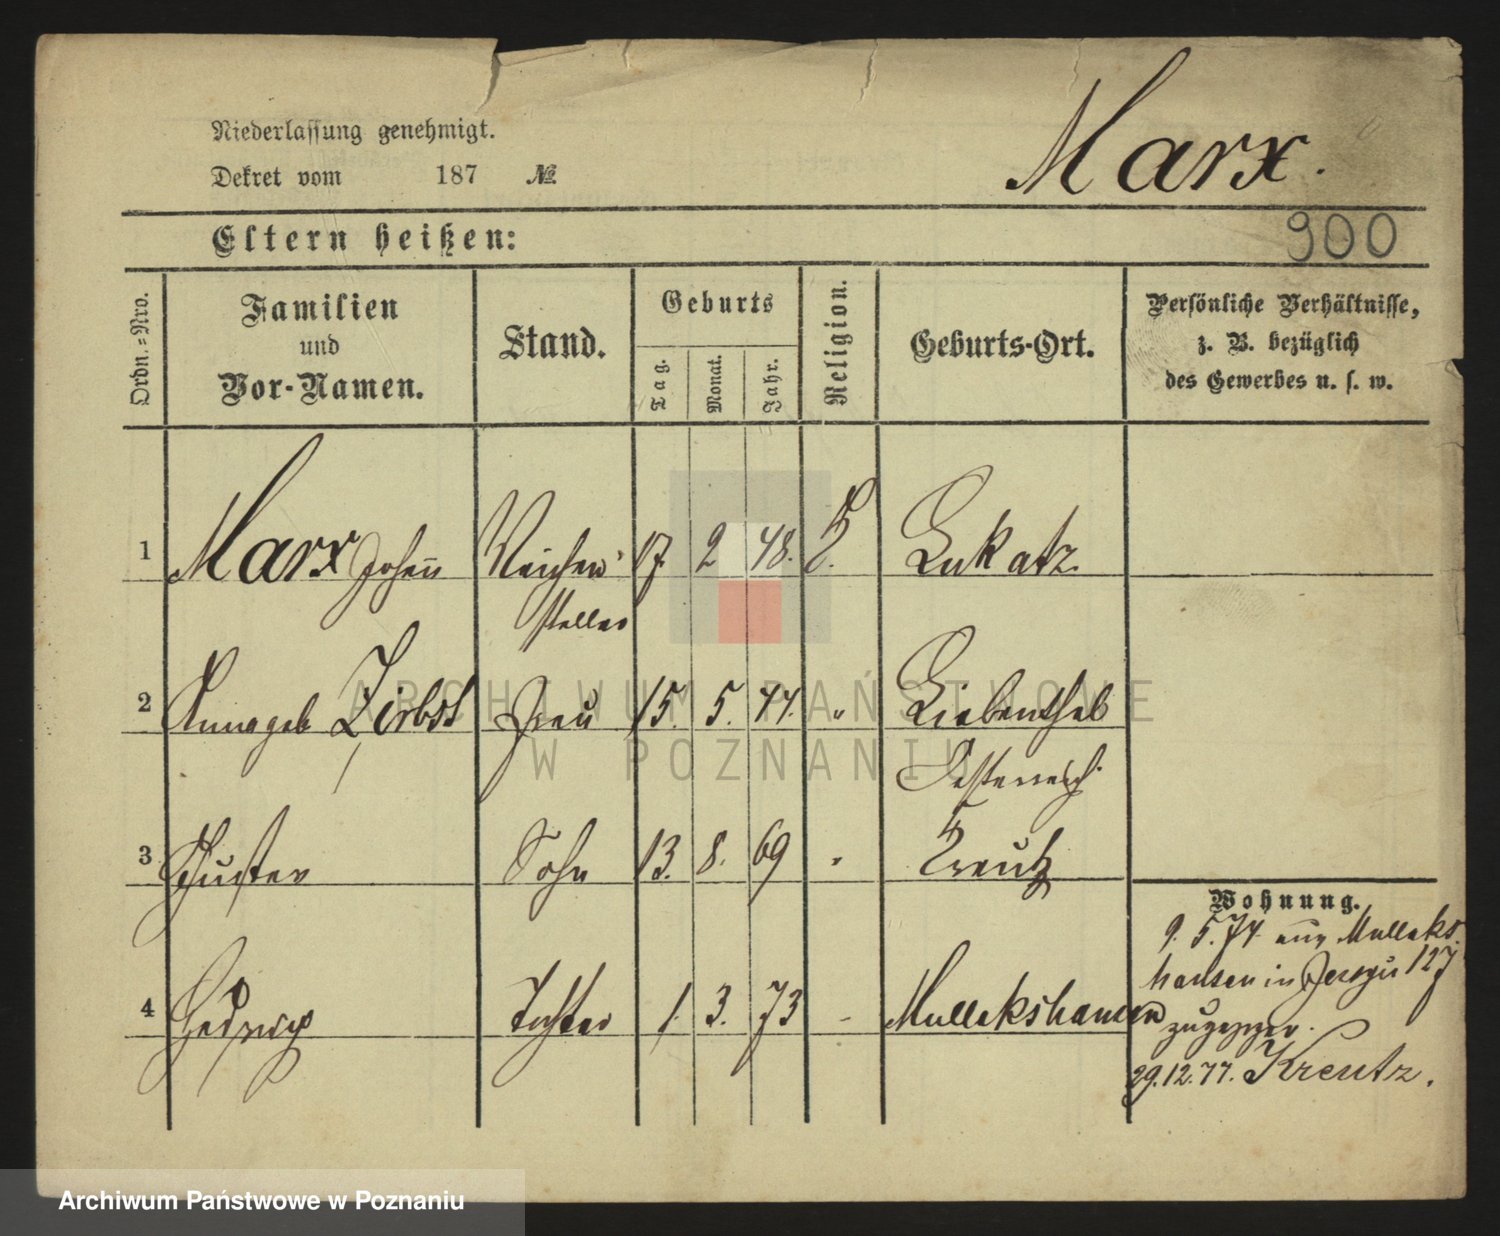 Niederlassung genehmigt.
Dekret vom 187 №
Marx.
Eltern heißen:
900
Ordn.=Nro.
Familien
und
Vor-Namen.
Stand.
Geburts
Tag.
Monat.
Jahr.
Religion.
Geburts-Ort.
Persönliche Verhältnisse,
z. B. bezüglich
des Gewerbes u. s. w.
1 Marx Johann Weichen- 17. 2 48. Lukatz
steller
2 Anna geb Zirbst Frau 15. 5. 44. " Liebenthal
Oesterreich
3 Gustav Sohn 13. 8. 69 " Kreutz
Wohnung.
4 Hedwig Tochter 1. 3. 73 - Mulekshausen
9. 5. 74. aus Mulleks-
hausen in Jersyce 127
zugezogen.
29.12.77. Kreutz.
ARCHIWUM PAŃSTWOWE
W POZNANIU
Archiwum Państwowe w Poznaniu